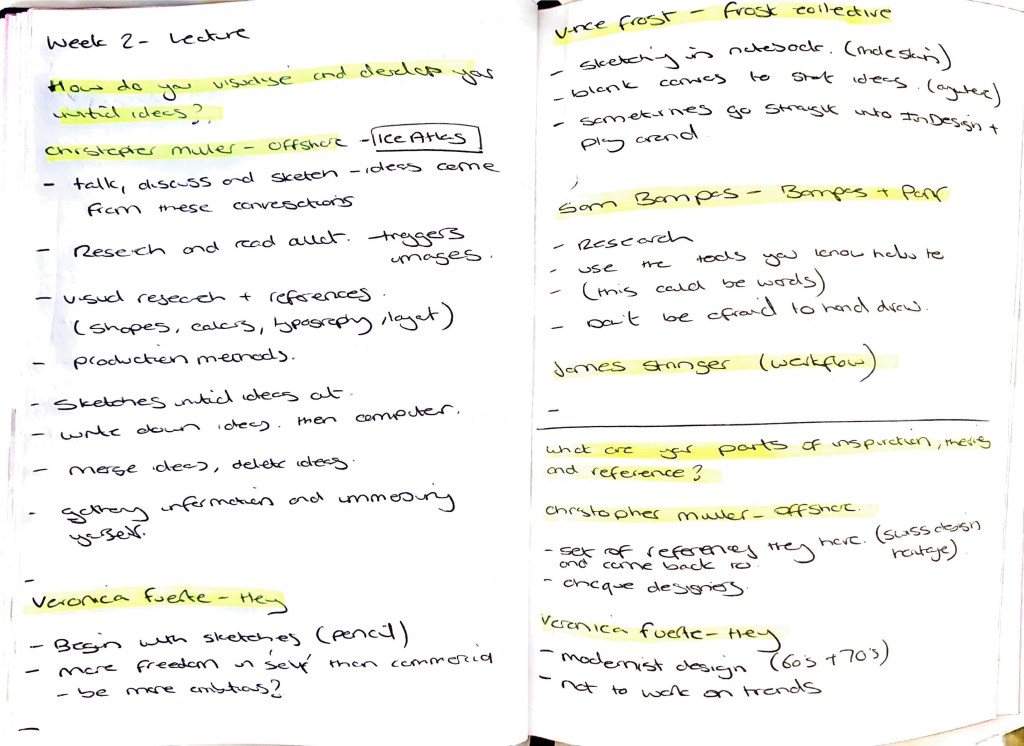 Week 2 - Lecture
How do you visualise and develop your
initial ideas?
Christopher muller - Offshore - Ice Atlas
- talk, discuss and sketch - ideas come
from these conversations
- Research and read allot. - triggers
images.
- visual research + references.
(shapes, colors, typography, layout)
- production methods.
- Sketches initial ideas out.
- write down ideas. then computer.
- merge ideas, delete ideas.
- gathering information and immersing
yourself.
-
Veronica fuerte - Hey
- Begin with sketches (pencil)
- more freedom in 'self' than commercial
- be more ambitious?
-
Vince frost - frost collective
- sketching in notebook. (moleskin)
- blank canvas to start ideas.
- sometimes go straight into InDesign +
play around.
Sam Bompas - Bompas + Parr
- Research
- use the tools you know how to
- (this could be words)
- Don't be afraid to hand draw.
James Stringer (werkflow)
-
what are your parts of inspiration, theories
and reference?
christopher muller - Offshore.
- set of references they have. (swiss design
heritage)
and come back to
- designers.
Veronica fuerte - Hey
- modernist design (60's + 70's)
- not to work on trends